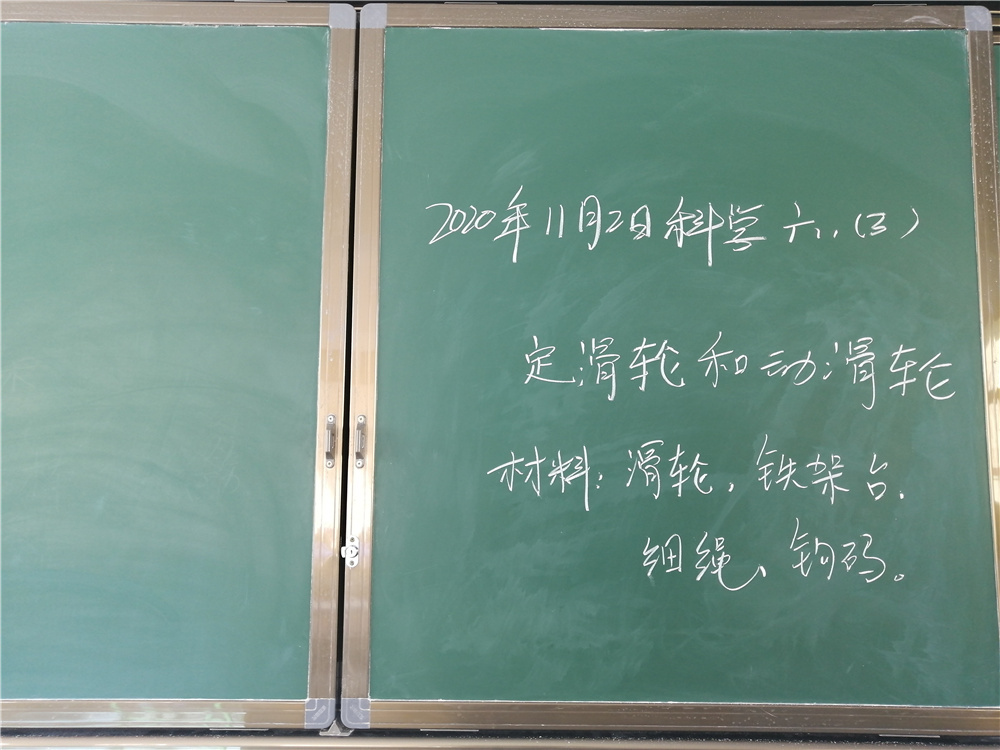 2020年11月2日科学六..(3)
定滑轮和动滑轮
材料:滑轮,铁架台.
细绳、钩码。